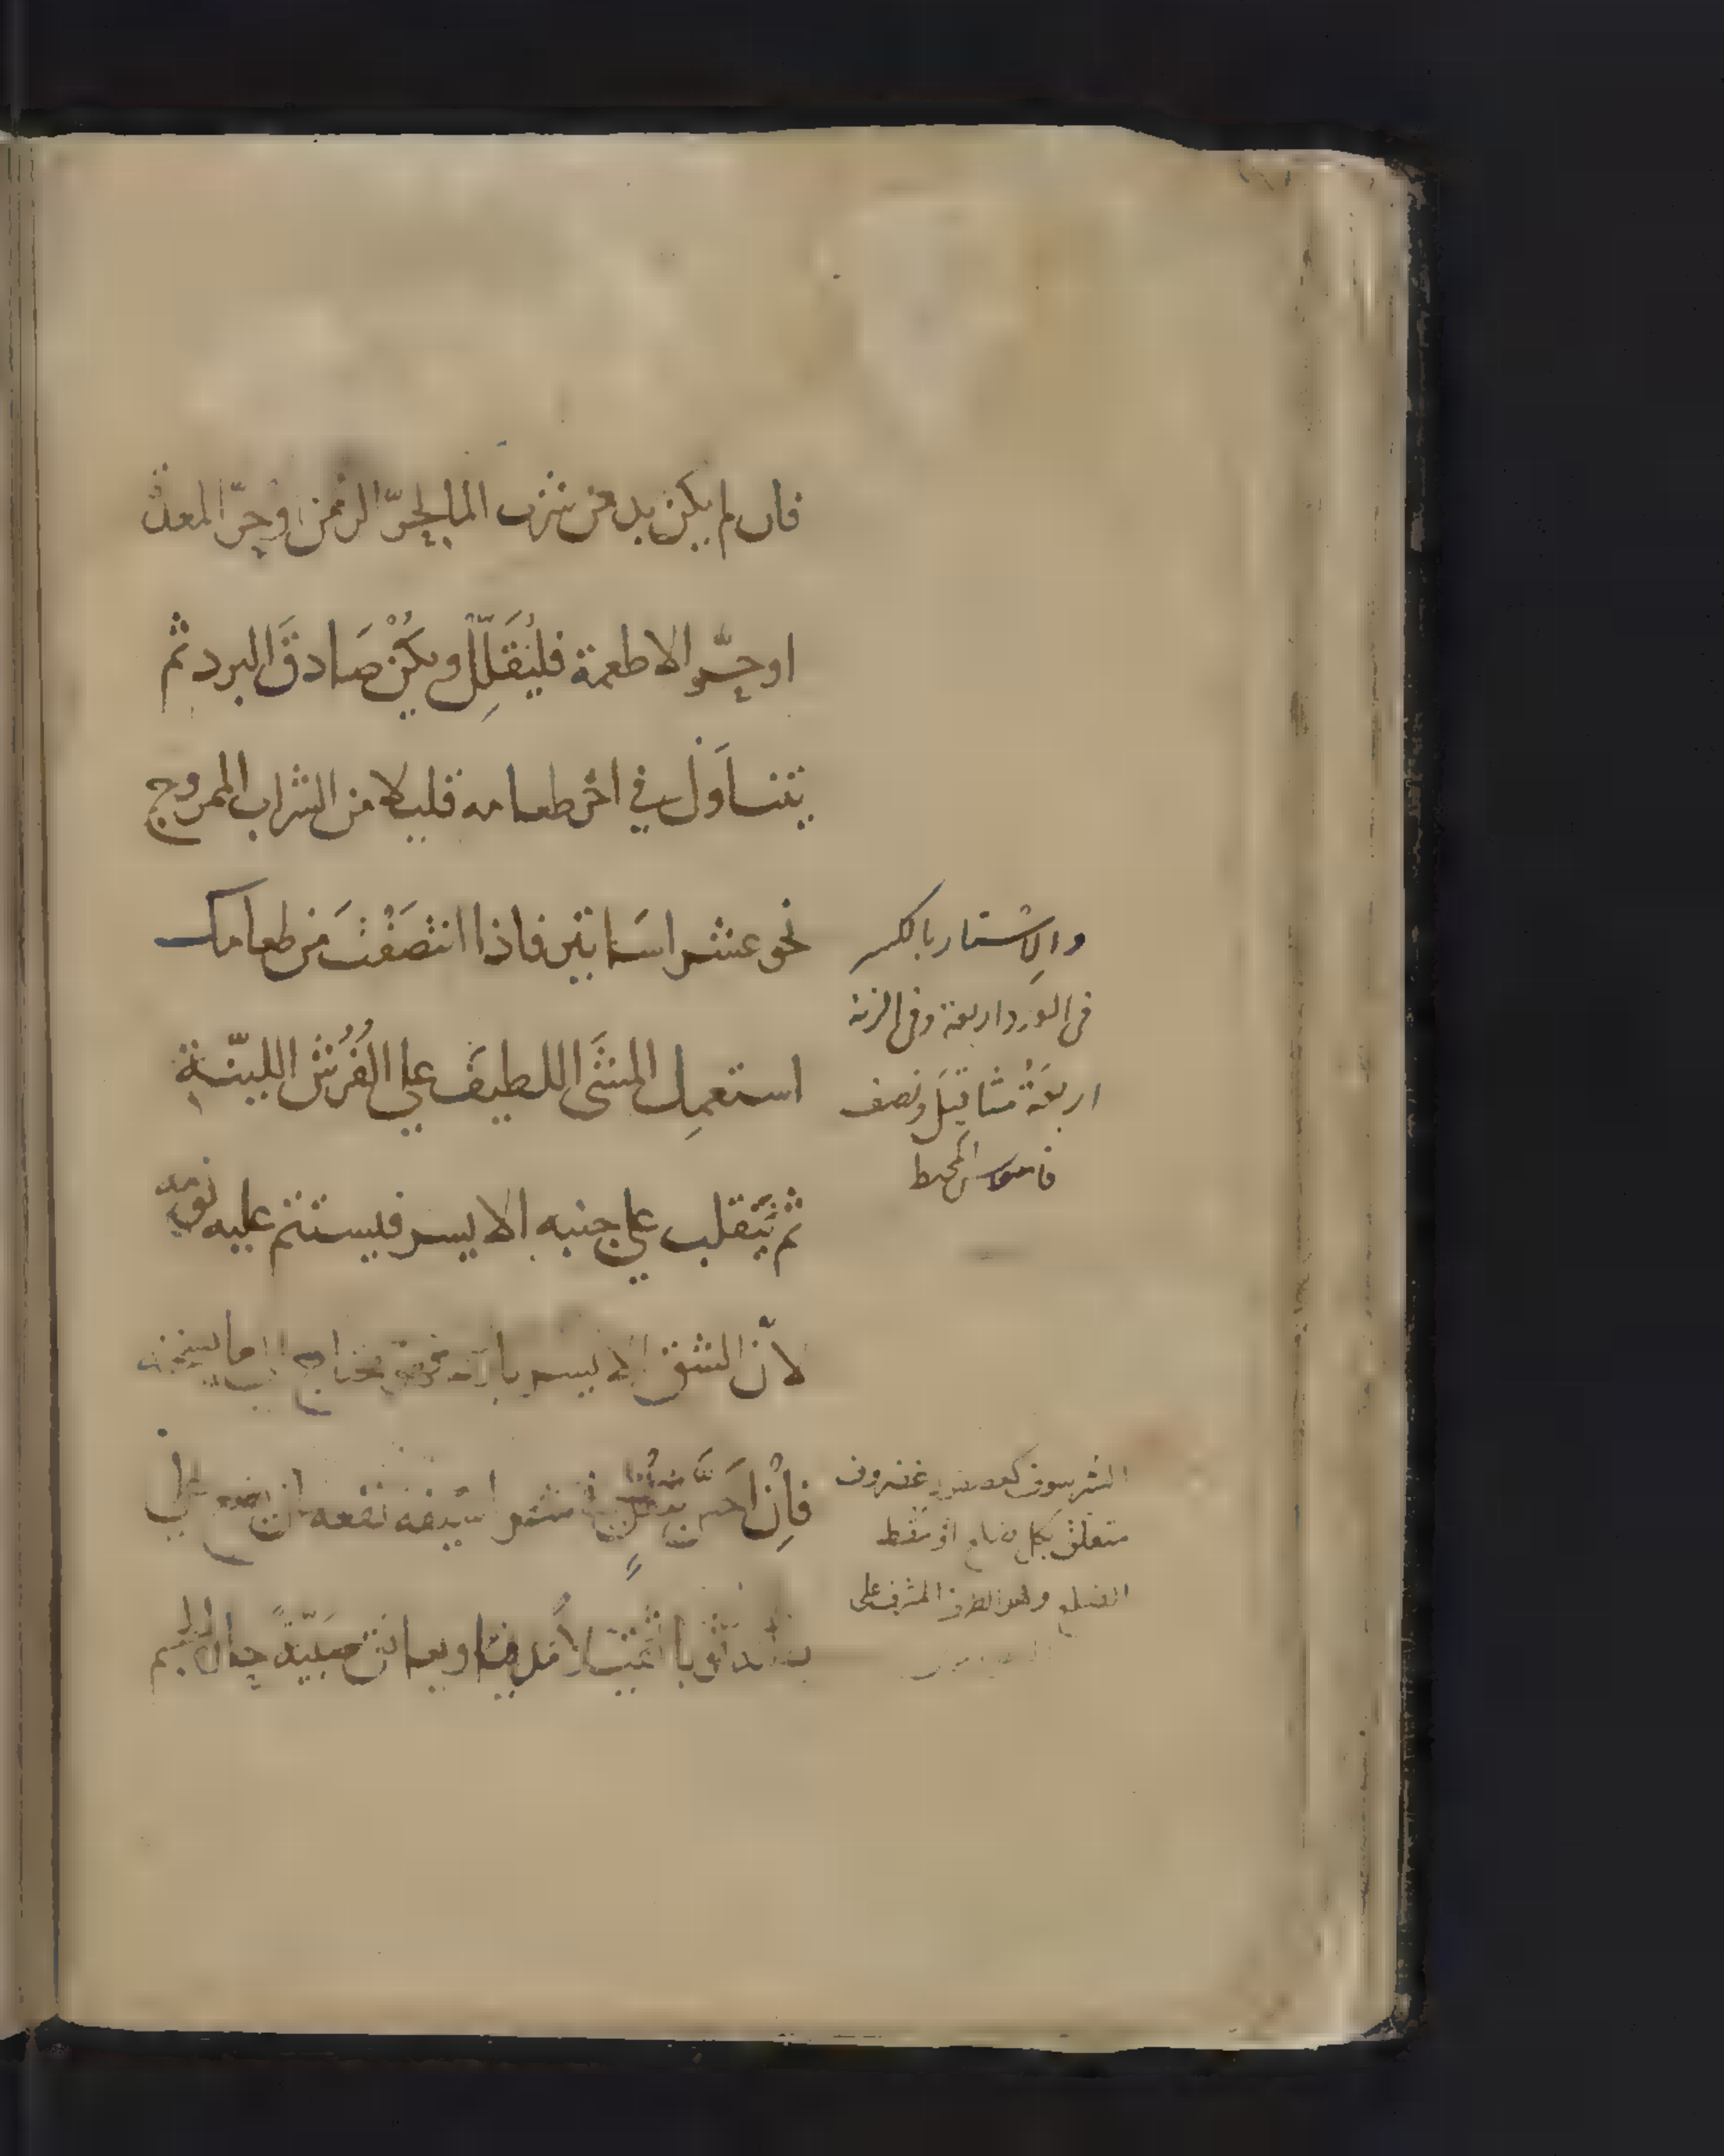 فان لم يكن بد من شرب الما لحرّ الزمن او حرّ المعدة
او حرّ الاطعمة فليُقَلِّل ويكُنْ صَادقَ البرد ثم
يتناوَل في اخر طعامه قليلا من الشراب الممزوج
نحو عشر اسَاتير فاذا انتصَفْتَ من طعامك
استعمِل المشَى اللطيفَ علي الفُرُش الليّنة
ثم يَتقلب علي جنبه الايسر فيستتم عليه نومه
لانّ الشق الايسر بارد يحتاج الي ما يسخنه
فاِنْ اَحسَّ بثقل في شراسيفه نفعه ان يضع علي
والاِسْتار بالكسر
في العدد اربعة وفي الزنة
اربعَةُ مثاقيلَ ونصف
قاموس المحيط
الشرسوف كعصفور غضروف
متعلق بكل ضلع او مقط
الضلع وهو الطرف المشرف على